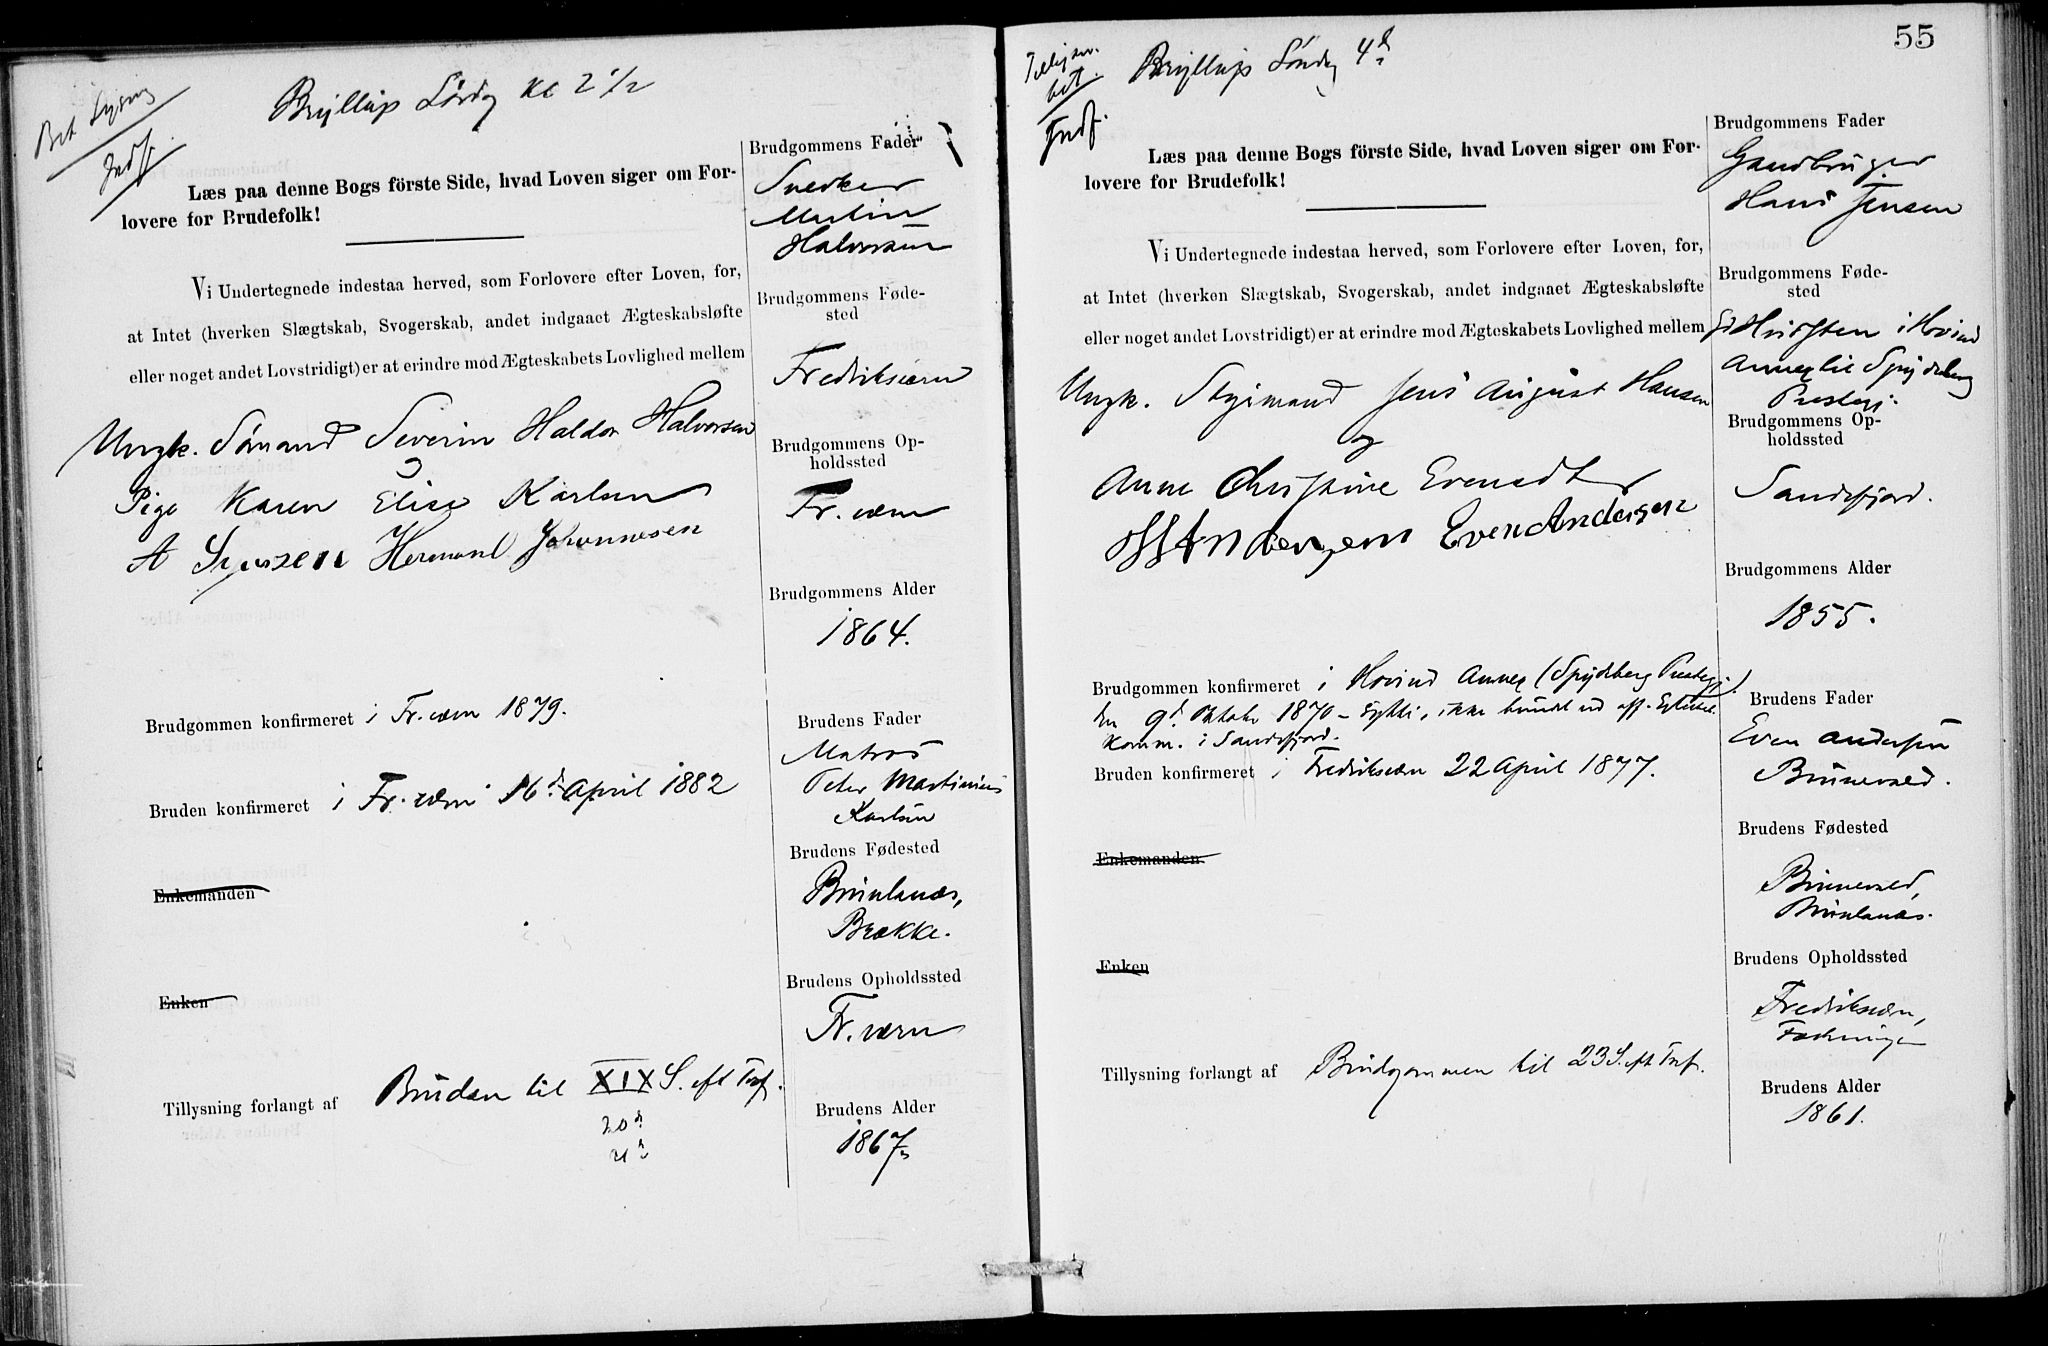 Bet Lysning
Indf.
Bryllup Lørdag Kl 2 1/2
Læs paa denne Bogs förste Side, hvad Loven siger om For-
lovere for Brudefolk!
Vi Undertegnede indestaa herved, som Forlovere efter Loven, for,
at Intet (hverken Slægtskab, Svogerskab, andet indgaaet Ægteskabsløfte
eller noget andet Lovstridigt) er at erindre mod Ægteskabets Lovlighed mellem
Ungk. Sömand Severin Haldor Halvorsen
og
Pige Karen Elise Karlsen
A Hermand Johannesen
Brudgommen konfirmeret i Fr.værn 1879.
Bruden konfirmeret i Fr.værn 16d. April 1882
Enkemanden
Enken
Tillysning forlangt af Bruden til XIX S. eft Tref.
20d.
21d.
Brudgommens Fader
Snedker
Martin
Halvorsen
Brudgommens Føde-
sted
Fredriksværn
Brudgommens Op-
holdssted
Fr.værn
Brudgommens Alder
1864.
Brudens Fader
Matros
Peter Martinius
Karlsen
Brudens Fødested
Brunlanæs,
Brække.
Brudens Opholdssted
Fr.værn
Brudens Alder
1867
55
bet.
Indf.
Bryllup Söndag 4d.
Læs paa denne Bogs förste Side, hvad Loven siger om For-
lovere for Brudefolk!
Vi Undertegnede indestaa herved, som Forlovere efter Loven, for,
at Intet (hverken Slægtskab, Svogerskab, andet indgaaet Ægteskabsløfte
eller noget andet Lovstridigt) er at erindre mod Ægteskabets Lovlighed mellem
Ungk. Styrmand Jens August Hansen
og
Anne Christine Evensdtr
Even Andersen
Brudgommen konfirmeret i Hovind Annex (Spydberg Prestegj.)
den 9d. Oktober 1870 – ikke
Komm. i Sandefjord.
Bruden konfirmeret i Fredriksværn 22 April 1877.
Enkemanden
Enken
Tillysning forlangt af Brudgommen til 23 S. eft Tref.
Brudgommens Fader
Gaardbruger
Hans Jensen
Brudgommens Føde-
sted
i Hovind
Annex til Spydeberg
Prestegj.
Brudgommens Op-
holdssted
Sandefjord.
Brudgommens Alder
1855.
Brudens Fader
Even Andersen
Brunevald.
Brudens Fødested
Brunevald,
Brunlanæs.
Brudens Opholdssted
Fredriksværn,
Brudens Alder
1861.